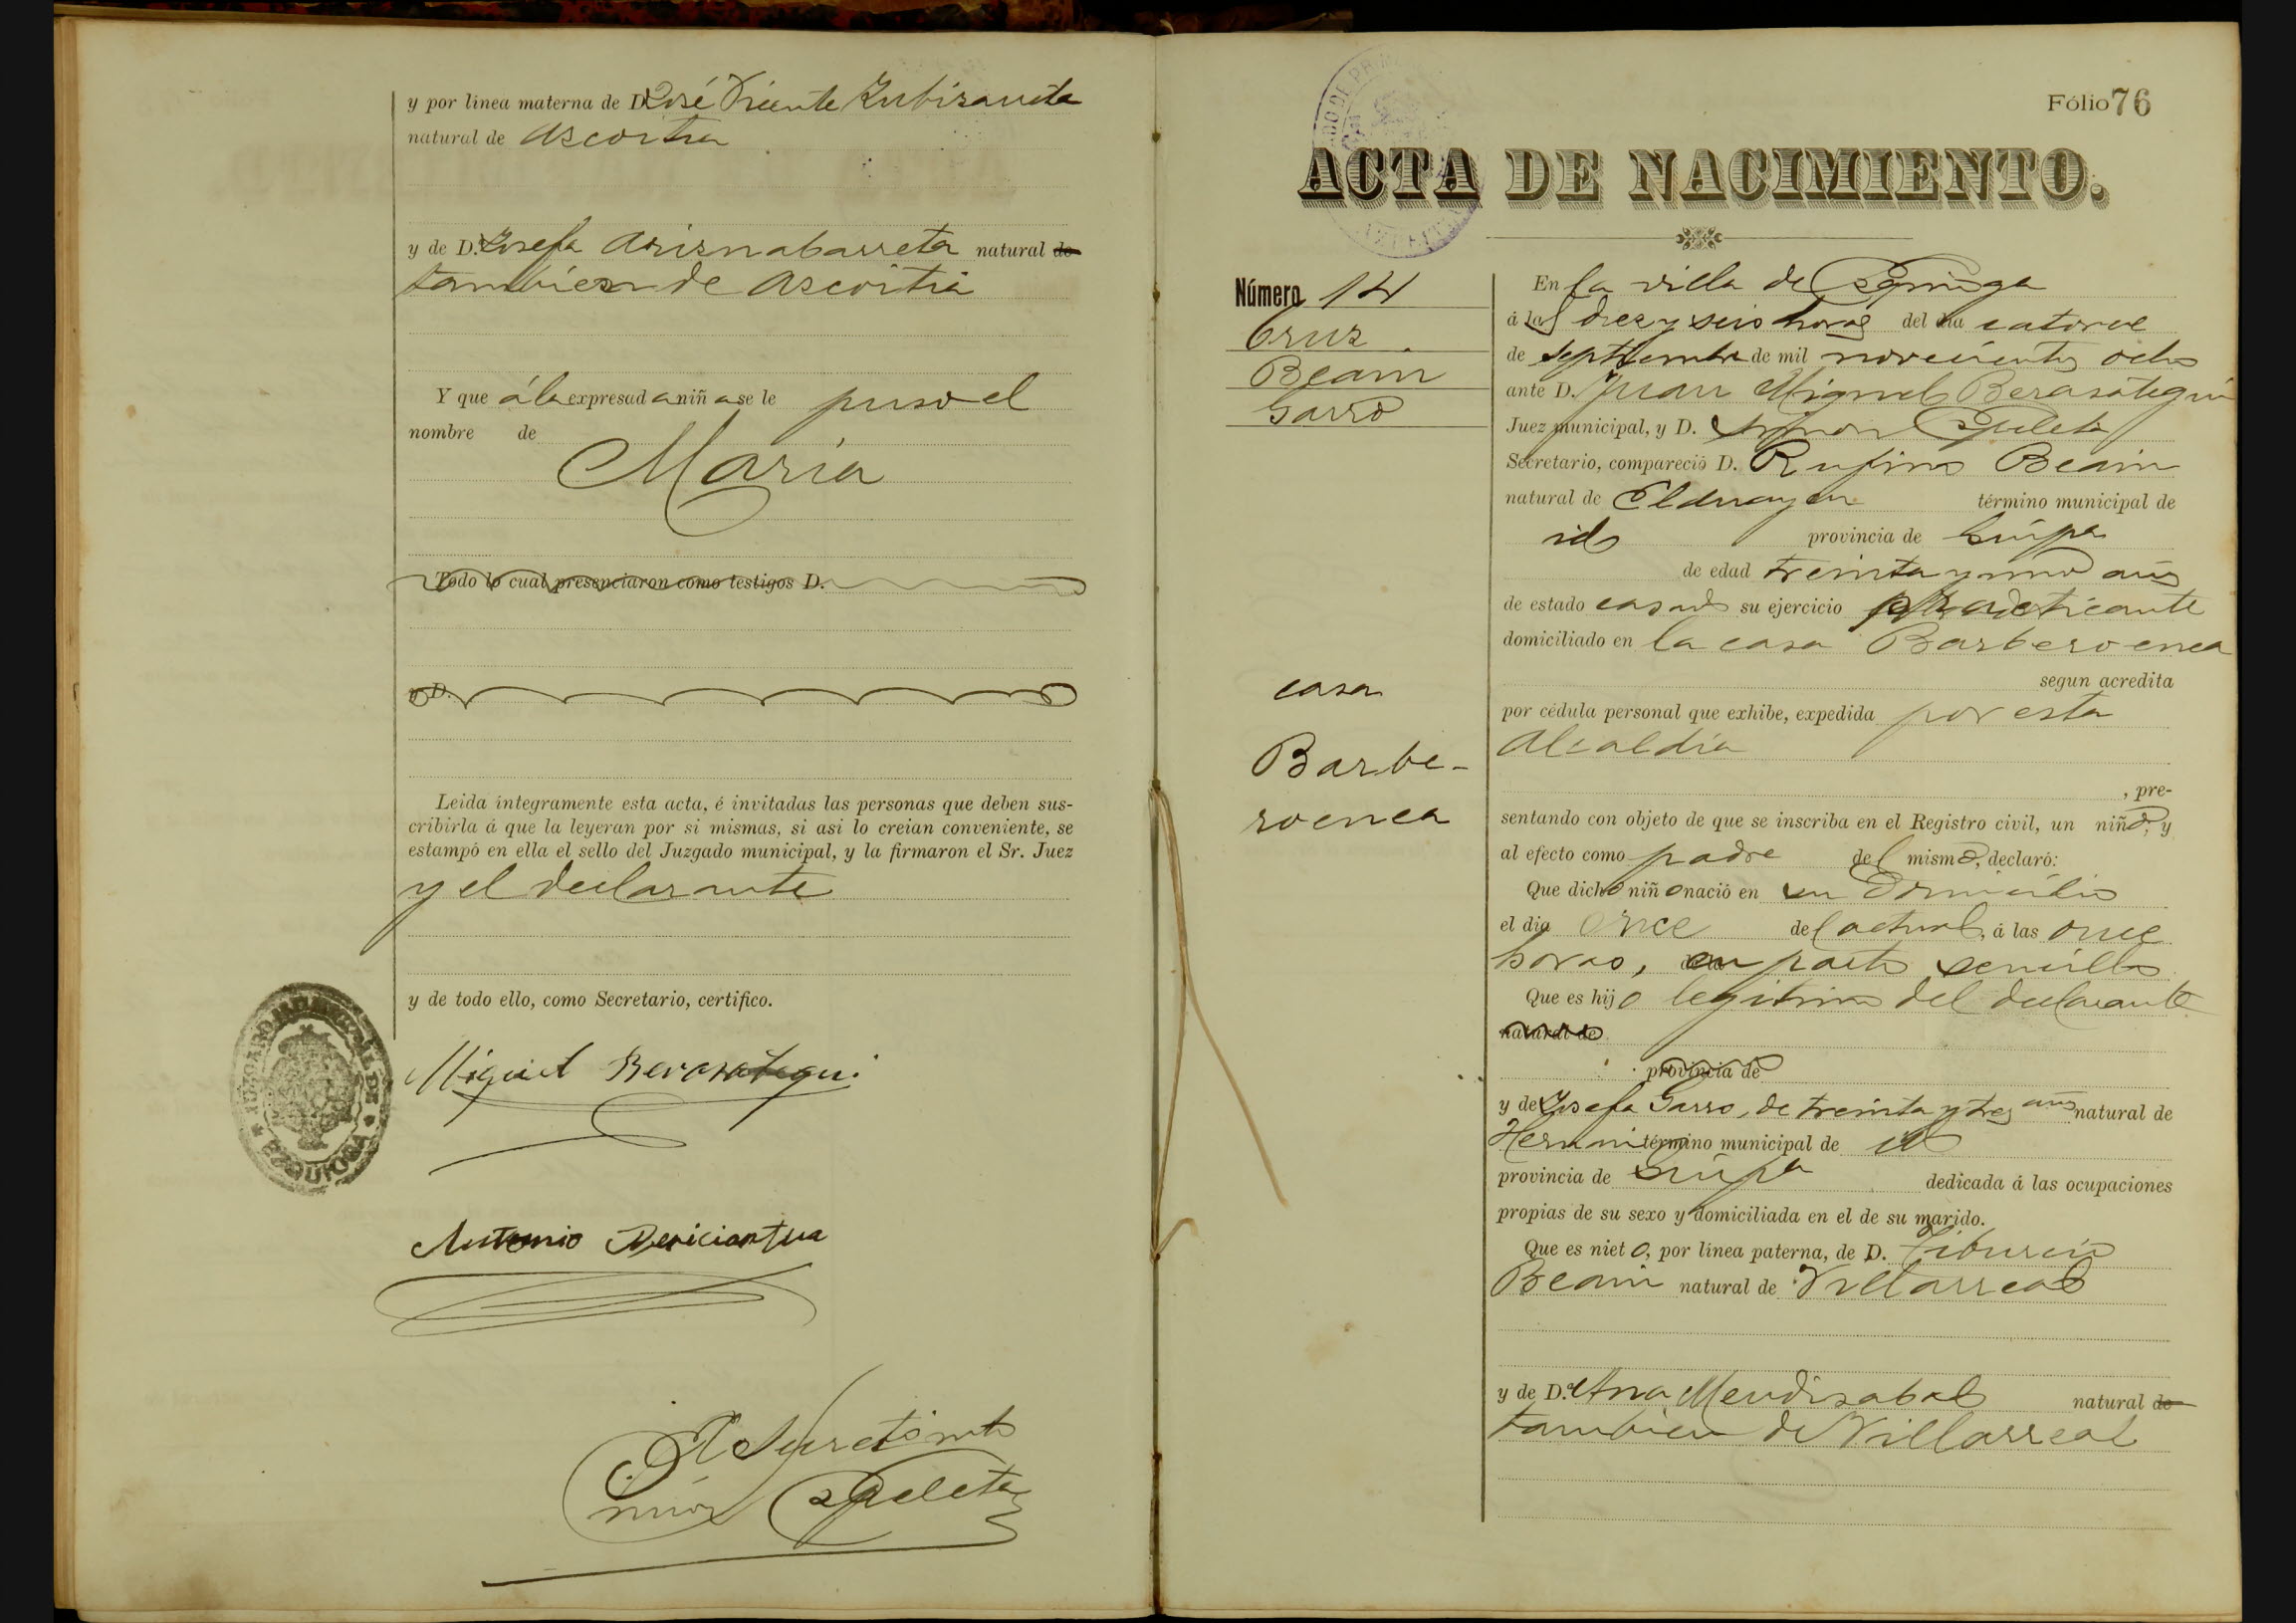 y por línea materna de D. José Vicente Zubizarreta
natural de Ascoitia
y de D.ª Josefa Arisnabarreta natural de
tambien de Ascoitia
Y que á la expresada niña se le puso el
nombre de
Maria
Todo lo cual presenciaron como testigos D.
y D.
Leida íntegramente esta acta, é invitadas las personas que deben sus-
cribirla á que la leyeran por si mismas, si asi lo creian conveniente, se
estampó en ella el sello del Juzgado municipal, y la firmaron el Sr. Juez
y el declarante
y de todo ello, como Secretario, certifico.
JUZGADO MUNICIPAL DE
Miguel Berasategui
Antonio
El Secretario
Fólio 76
ACTA DE NACIMIENTO.
Número 14
Cruz
Beain
Garro
casa
Barbe-
roenea
En la villa de
á las diez y seis horas del dia catorce
de septiembre de mil novecientos ocho
ante D. Juan Miguel Berasategui
Juez municipal, y D.
Secretario, compareció D. Rufino Beain
natural de Elduayen término municipal de
id provincia de Guipa
de edad treinta y uno años
de estado casado su ejercicio practicante
domiciliado en la casa Barberoenea
segun acredita
por cédula personal que exhibe, expedida por esta
Alcaldia
, pre-
sentando con objeto de que se inscriba en el Registro civil, un niño, y
al efecto como padre del mismo, declaró:
Que dicho niño nació en su domicilio
el dia once del actual, á las once
horas, en parto sencillo
Que es hijo legitimo del declarante
natural de
provincia de
y de Josefa Garro, de treinta y tres años natural de
Hernani término municipal de id
provincia de Guipa dedicada á las ocupaciones
propias de su sexo y domiciliada en el de su marido.
Que es nieto, por línea paterna, de D. Tiburcio
Beain natural de Villarreal
y de D.ª Ana Mendizabal natural de
tambien de Villarreal